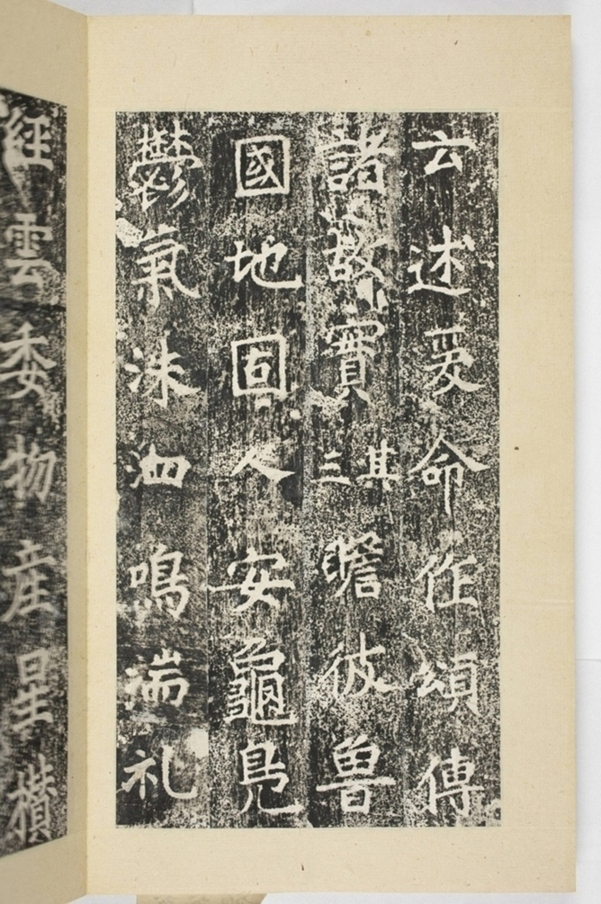 云述爰命作頌傳
諸故實其三瞻彼魯
國地固人安龜鳧
鬱氣洙泗鳴湍礼
經雲委物産星攢